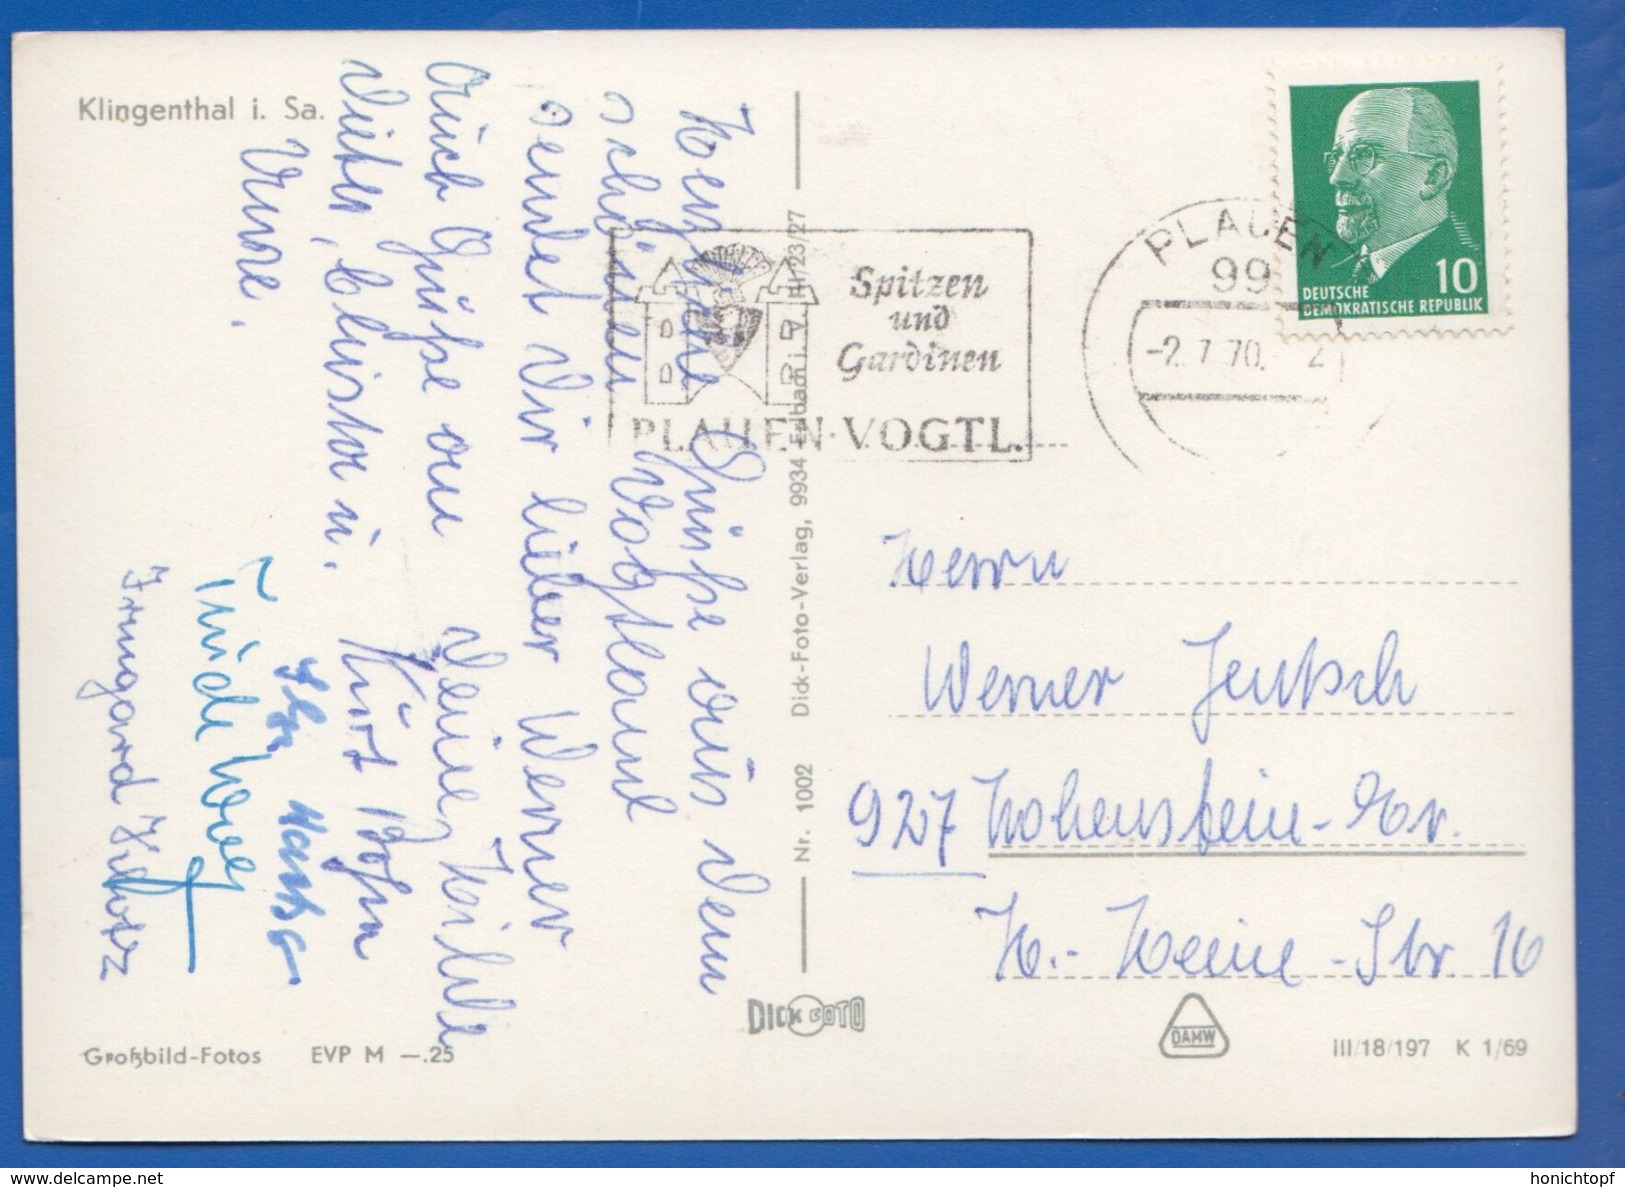 Klingenthal i. Sa.
Herzliche Grüße aus dem
schönen Vogtland
sendet Dir lieber Werner
Deine Heilde
Auch Grüße an
Dieter, Christa u.
Anne.
Kurt Bohn
Irmgard
Großbild-Fotos EVP M —.25
Nr. 1002 Dick-Foto-Verlag, 9934 Erlbach i. V.
DICK FOTO
Spitzen
und
Gardinen
PLAUEN · VOGTL.
PLAUEN
99
-2.7.70. - 2
10
DEUTSCHE
DEMOKRATISCHE REPUBLIK
Herrn
Werner Jentsch
927 Hohenstein-Er.
H.-Heine-Str 16
DAMW
III/18/197 K 1/69
honichtopf